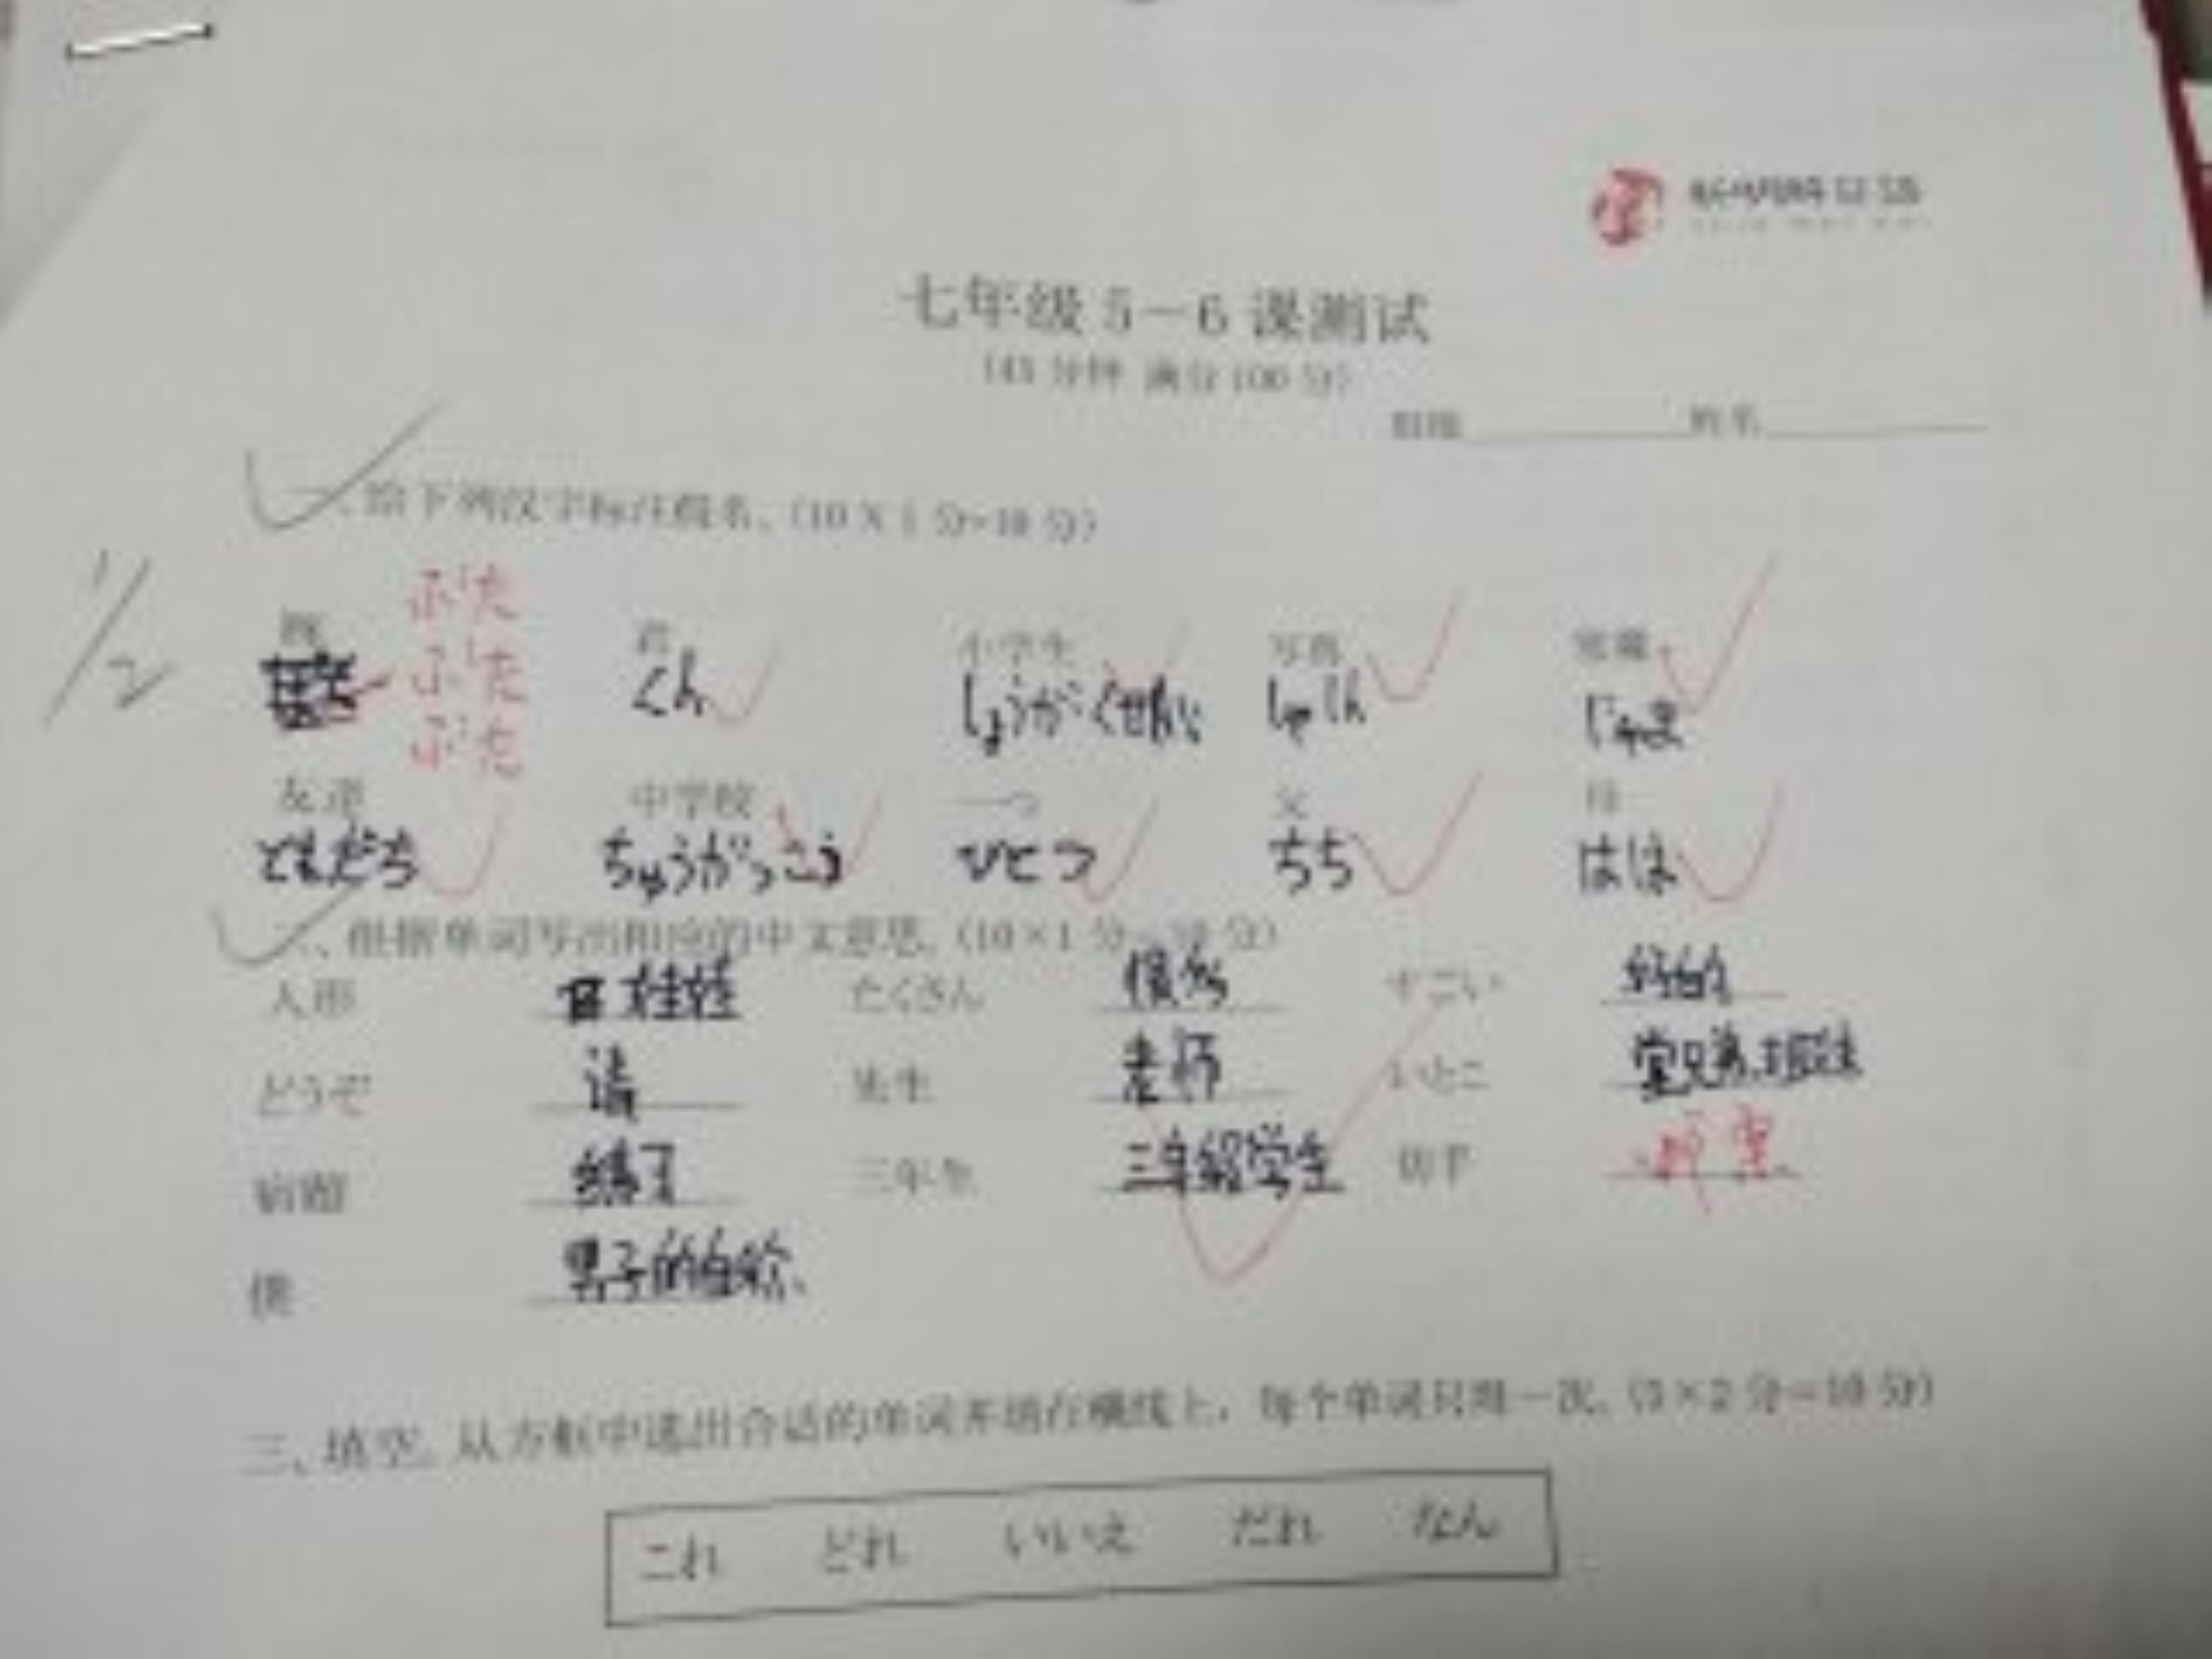 七年级 5－6 课测试
(45 分钟 满分 100 分)
班级 姓名
一、给下列汉字标注假名。(10×1 分=10 分)
1/2
ぶた
ぶた
ぶた
豚 君 小学生 写真
くん しょうがくせい しゃしん じゃま
友達 中学校 一つ 父 母
ともだち ちゅうがっこう ひとつ ちち はは
二、根据单词写出相应的中文意思。(10×1 分=10 分)
人形 娃娃 たくさん 很多 すごい 好的
どうぞ 请 先生 老师 いとこ 堂兄弟
宿題 练习 三年生 三年级学生 切手
僕 男子的自称
三、填空。从方框中选出合适的单词并填在横线上，每个单词只用一次。(5×2 分=10 分)
これ どれ いいえ だれ なん